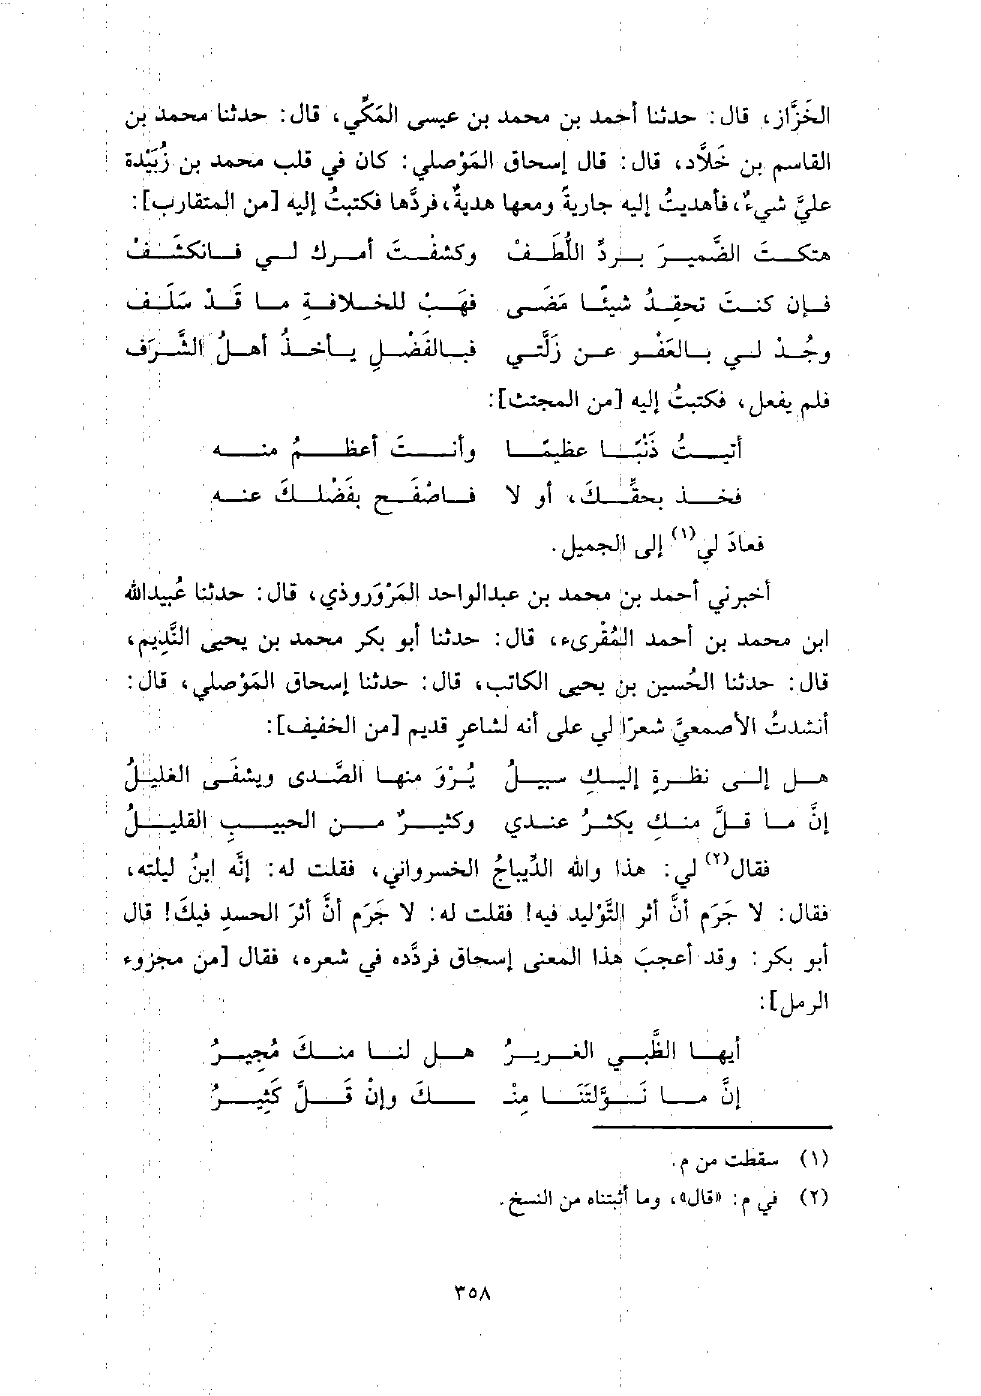 الخَزَّاز، قال: حدثنا أحمد بن محمد بن عيسى المَكِّي، قال: حدثنا محمد بن
القاسم بن خَلَّاد، قال: قال إسحاق المَوْصلي: كان في قلب محمد بن زُبَيْدة
عليَّ شيءٌ، فأهديتُ إليه جاريةً ومعها هديةٌ، فردَّها فكتبتُ إليه [من المتقارب]:
هتكتَ الضَّميرَ بردِّ اللُّطَفْ وكشفْتَ أمرك لي فانكشَفْ
فإن كنتَ تحقِدُ شيئًا مَضَى فهَبْ للخلافةِ ما قَدْ سَلَف
وجُدْ لي بالعَفْو عن زَلَّتي فبالفَضْلِ يأخذُ أهلُ الشَّرَف
فلم يفعل، فكتبتُ إليه [من المجتث]:
أتيتُ ذَنْبًا عظيمًا وأنتَ أعظمُ منه
فخذ بحقِّكَ، أو لا فاصْفَح بفَضْلكَ عنه
فعادَ لي(١) إلى الجميل.
أخبرني أحمد بن محمد بن عبدالواحد المَرْوَروذي، قال: حدثنا عُبيدالله
ابن محمد بن أحمد المُقْرىء، قال: حدثنا أبو بكر محمد بن يحيى النَّدِيم،
قال: حدثنا الحُسين بن يحيى الكاتب، قال: حدثنا إسحاق المَوْصلي، قال:
أنشدتُ الأصمعيَّ شعرًا لي على أنه لشاعرٍ قديم [من الخفيف]:
هل إلى نظرةٍ إليكِ سبيلُ يُرْوَ منها الصَّدى ويشفَى الغليلُ
إنَّ ما قلَّ منكِ يكثرُ عندي وكثيرٌ من الحبيبِ القليلُ
فقال(٢) لي: هذا والله الدِّيباجُ الخسرواني، فقلت له: إنَّه ابنُ ليلته،
فقال: لا جَرَم أنَّ أثر التَّوْليد فيه! فقلت له: لا جَرَم أنَّ أثرَ الحسدِ فيكَ! قال
أبو بكر: وقد أعجبَ هذا المعنى إسحاق فردَّده في شعره، فقال [من مجزوء
الرمل]:
أيها الظَّبي الغريرُ هل لنا منكَ مُجيرُ
إنَّ ما نَوَّلتَنَا مِنْـ ـكَ وإنْ قَلَّ كَثِيرُ
(١) سقطت من م.
(٢) في م: «قال»، وما أثبتناه من النسخ.
٣٥٨